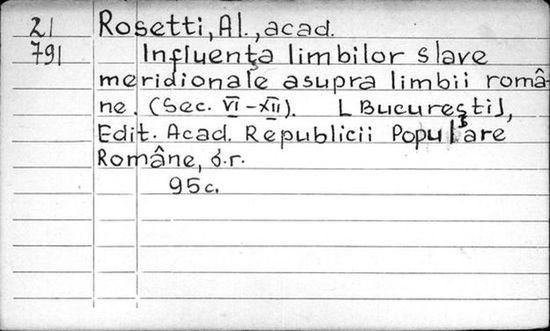 21 Rosetti, Al., acad.
791 Influența limbilor slave
meridionale asupra limbii româ-
ne. (Sec. VI-XII). [București],
Edit. Acad. Republicii Populare
Române, ó.r.
95c.